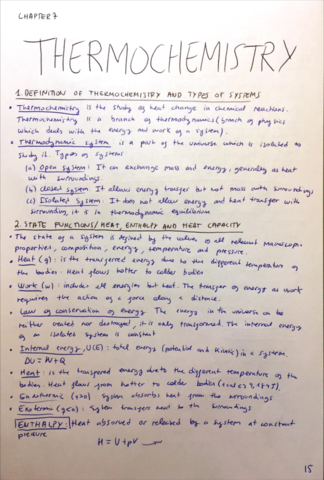 CHAPTER 7
THERMOCHEMISTRY
1. DEFINITION OF THERMOCHEMISTRY AND TYPES OF SYSTEMS
• Thermochemistry is the study of heat change in chemical reactions.
Thermochemistry is a branch of thermodynamics (branch of physics
which deals with the energy and work of a system).
• Thermodynamic system is a part of the universe which is isolated to
study it. Types of systems
(a) Open system: It can exchange mass and energy, generally as heat
with surroundings
(b) closed system: It allows energy transfer but not mass with surroundings
(c) Isolated System: It does not allow energy and heat transfer with
surrounding, it is in thermodynamic equilibrium
2. STATE FUNCTIONS/HEAT, ENTHALPY AND HEAT CAPACITY
• The state of a system is defined by the values of all relevant macroscopic
properties, composition, energy, temperature and pressure.
• Heat (q): is the transferred energy due to the different temperature of
the bodies. Heat flows hotter to colder bodies
• Work (w): includes all energies but heat. The transfer of energy as work
requires the action of a force along a distance.
• Law of conservation of energy The energy in the universe can be
neither created nor destroyed, it is only transformed. The internal energy
of an isolated system is constant
• Internal energy, U(E): total energy (potential and kinetic) in a system.
DU = W+Q
• Heat: is the transfered energy due to the different temperature of the
bodies. Heat flows from hotter to colder bodies
• Exothermic (q<0) System transfers heat to the surroundings
ENTHALPY: Heat absorbed or released by a system at constant
pressure
H = U + pV
15